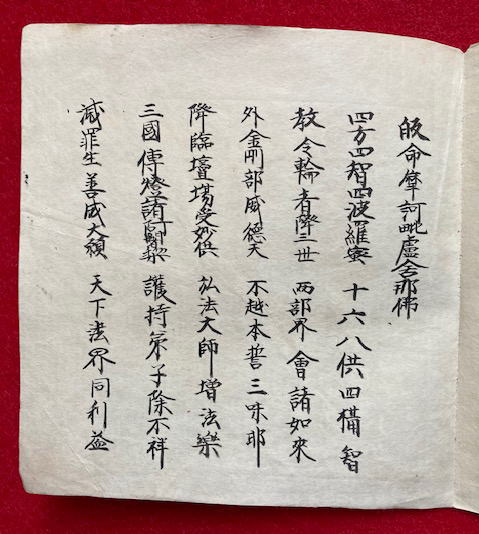 皈命摩訶毗盧舍那佛
四方四智四波羅蜜 十六八供四攝智
教令輪者降三世 两部界會諸如來
外金剛部威德天 不越本誓三味耶
降臨壇場受妙供 弘法大師增法樂
三國傳燈諸阿闍梨 護持弟子除不祥
滅罪生善成大願 天下法界同利益